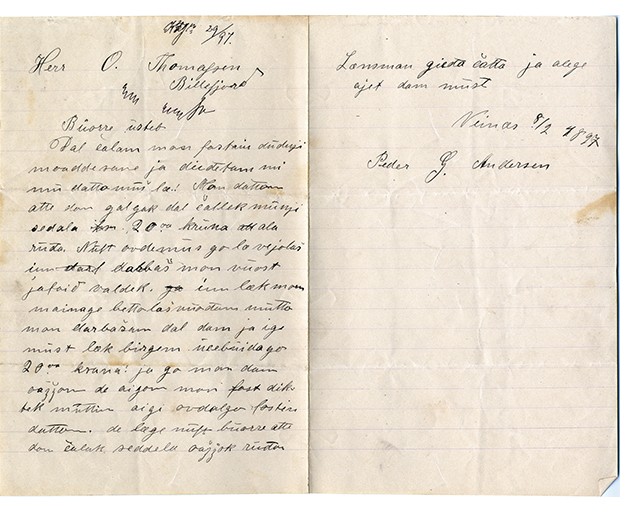 29/97.
Herr O. Thomassen
Billefjord
Buorre usteb
Dal čalam mon fastain dudnji
moaddesane ja diedetam mi
mu dattomuš læ! Man dattom
atte don galgak dal čallek munji
sedala 20 00 kruna ala
ruđa. Nuft ovdemus go la vejolaš
inn darbbaš mon vuost
jatoid valdek. inn læk mon
mainage bettolaš mutto
mon darbašam dal dam ja ige
must læk birgem ucebuidago
20 00 krana! ja go mon dam
oažžom de aigom mon fast dik
tek muttin aigi ovdalgo fastin
dattom. de læge nuft buorre atte
don čalak seddela oažžok ruđai
Lænsman gieđa čađa ja alge
ajet dam must
Veines 8/2 1897
Peder G. Andersen